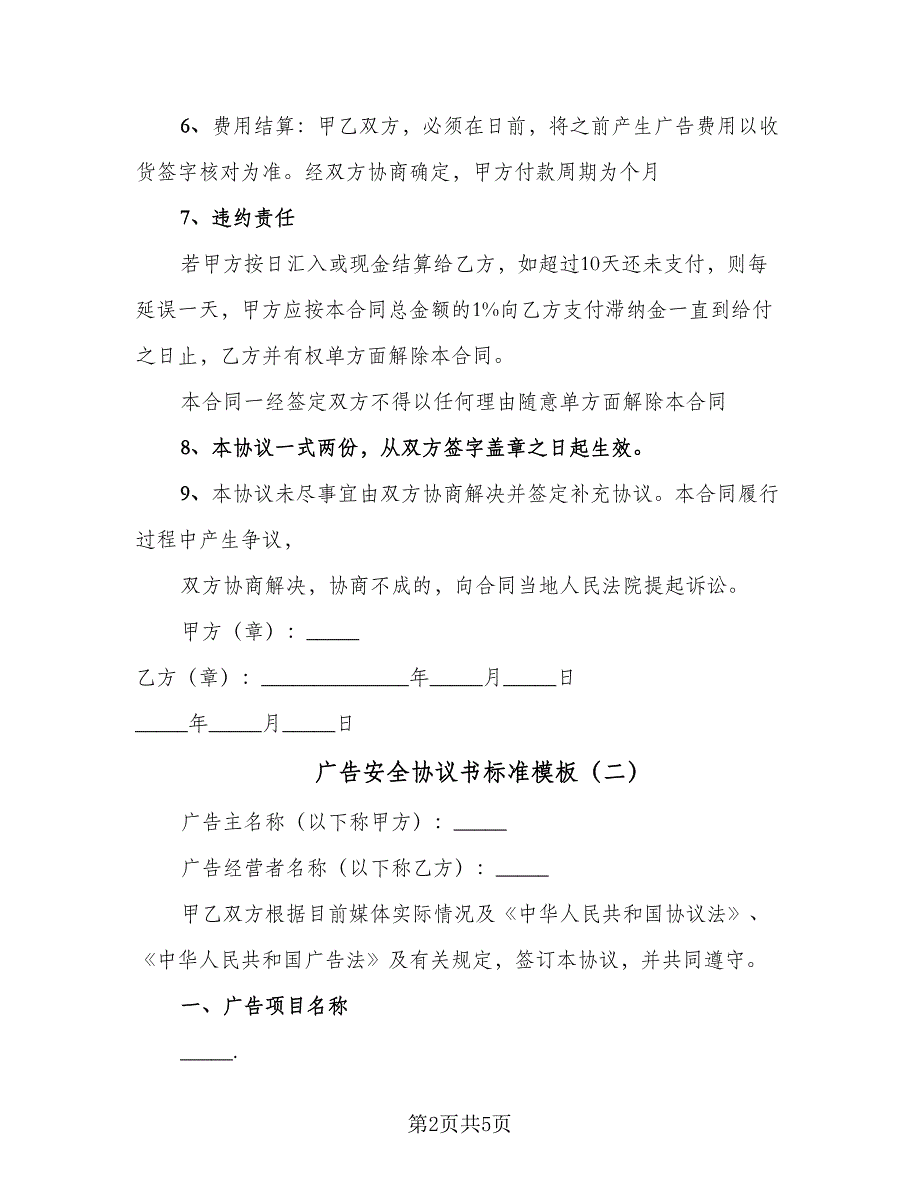 6、费用结算：甲乙双方，必须在日前，将之前产生广告费用以收
货签字核对为准。经双方协商确定，甲方付款周期为个月
7、违约责任
若甲方按日汇入或现金结算给乙方，如超过10天还未支付，则每
延误一天，甲方应按本合同总金额的1%向乙方支付滞纳金一直到给付
之日止，乙方并有权单方面解除本合同。
本合同一经签定双方不得以任何理由随意单方面解除本合同
8、本协议一式两份，从双方签字盖章之日起生效。
9、本协议未尽事宜由双方协商解决并签定补充协议。本合同履行
过程中产生争议，
双方协商解决，协商不成的，向合同当地人民法院提起诉讼。
甲方（章）：_____
乙方（章）：______________年_____月_____日
_____年_____月_____日
广告安全协议书标准模板（二）
广告主名称（以下称甲方）：_____
广告经营者名称（以下称乙方）：_____
甲乙双方根据目前媒体实际情况及《中华人民共和国协议法》、
《中华人民共和国广告法》及有关规定，签订本协议，并共同遵守。
一、广告项目名称
_____.
第2页共5页